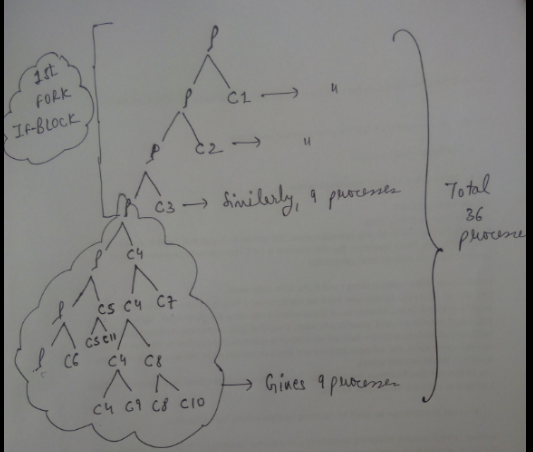 P
1st
FORK
IF-BLOCK
P C1 → "
P C2 → "
P C3 → Similarly, 9 processes
Total
36
processe
P C4
P C5 C4 C7
C5 C11
P C6 C4 C8
→ Gines 9 processes
C4 C9 C8 C10